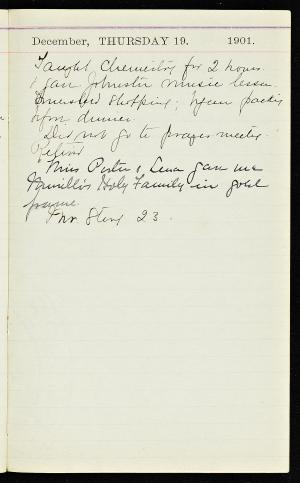 December, THURSDAY 19. 1901.
Taught Chemistry for 2 hours.
& gave Johnston music lesson.
Finished Shopping; began packing
before dinner.
Did not go to prayer meeting.
Retired
Miss Porter & Lena gave me
Murillo's Holy Family in gold
frame.
23.